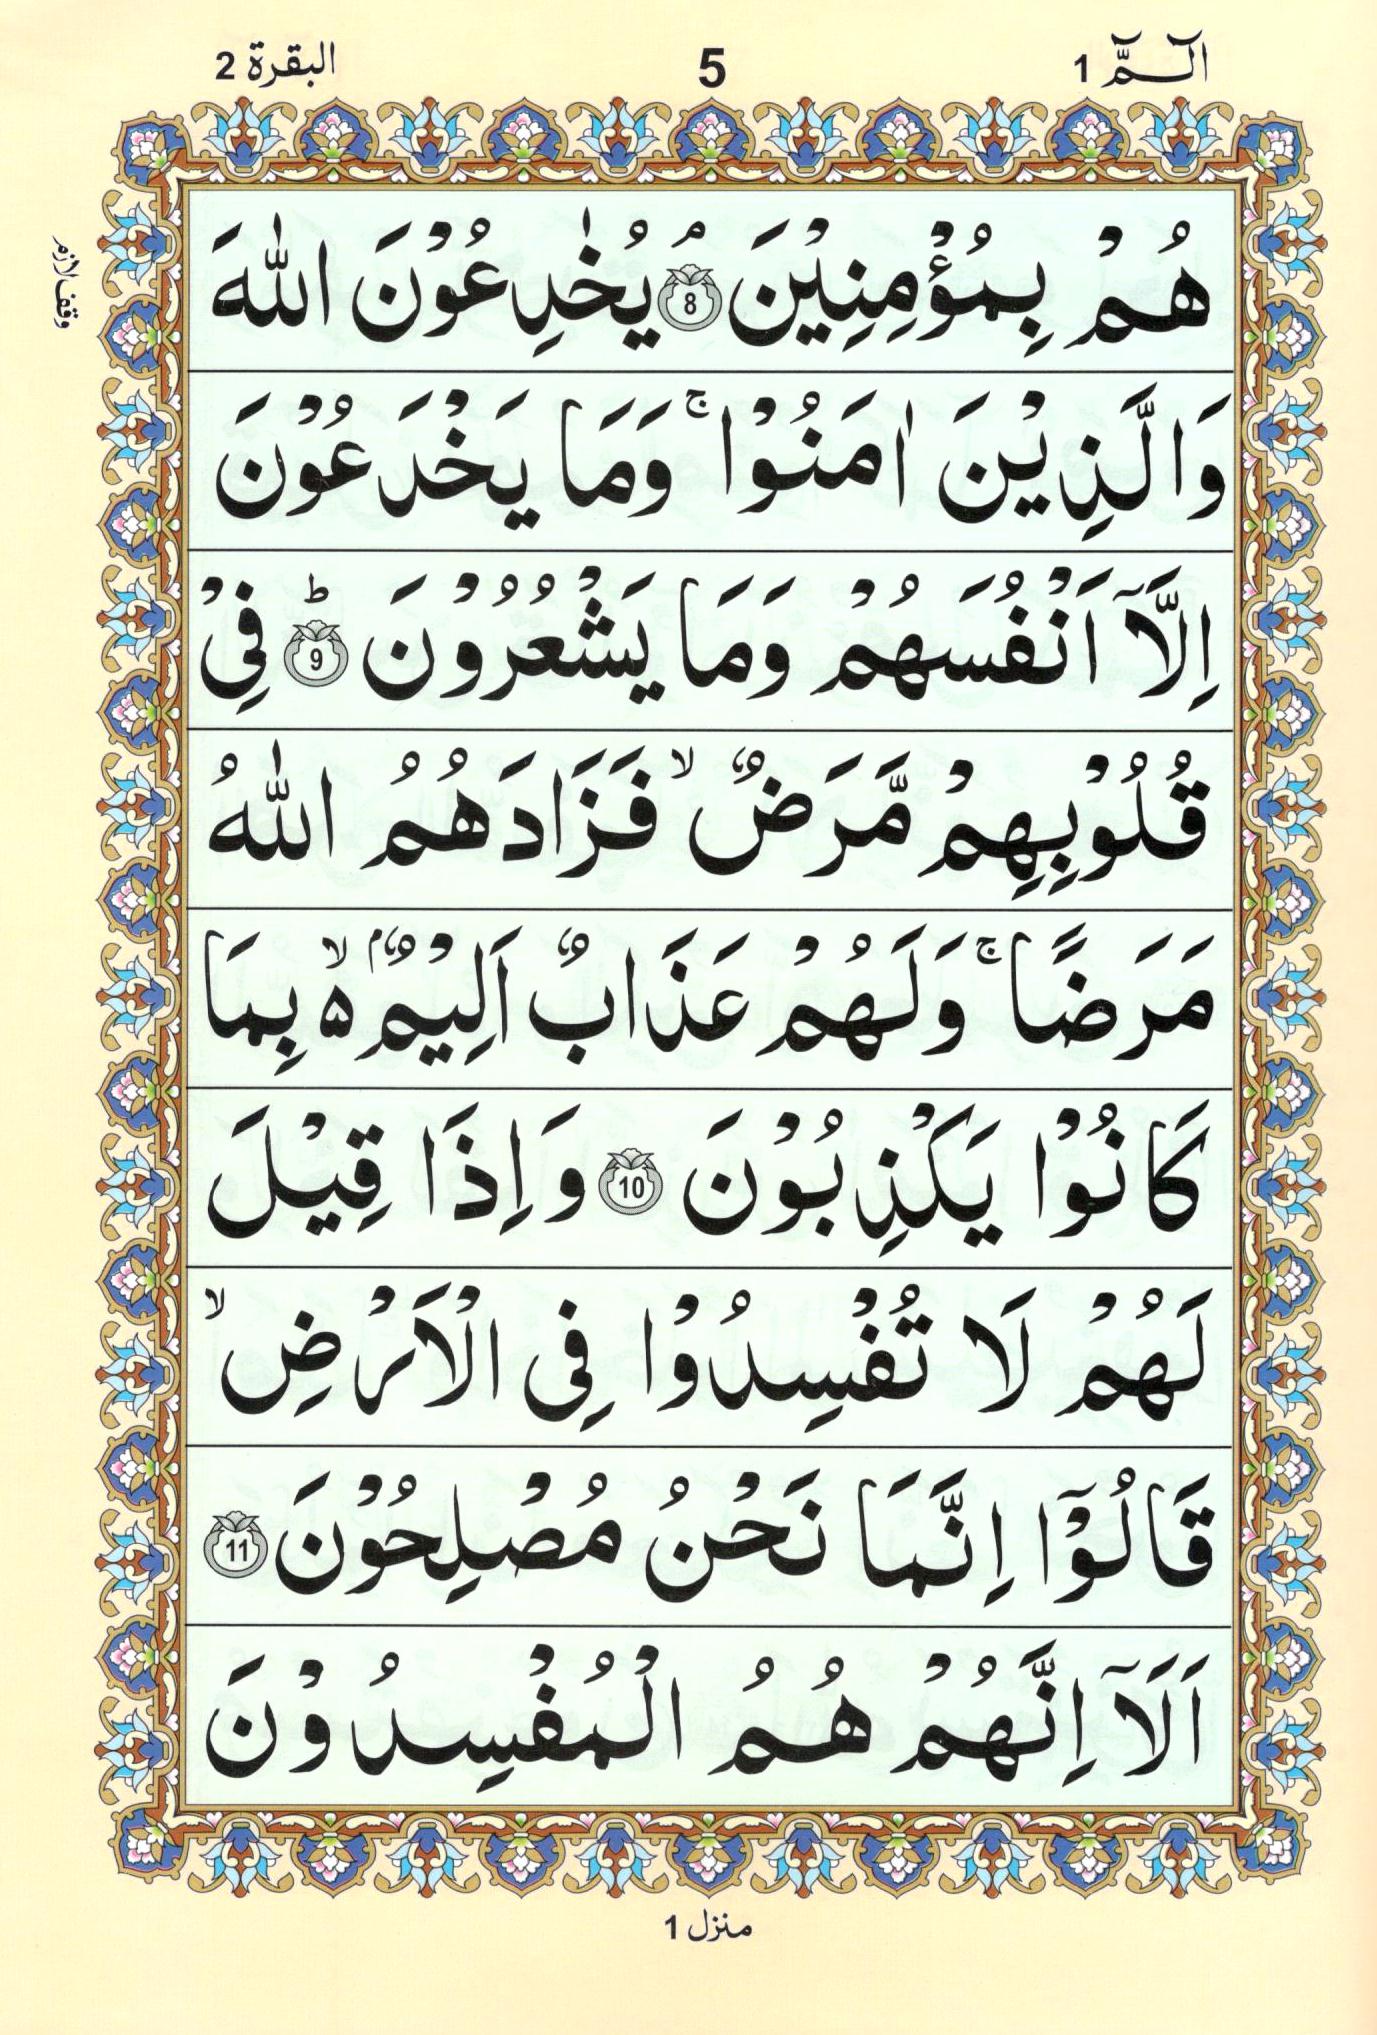 الٓـمّٓ 1
5
البقرة 2
هُمْ بِمُؤْمِنِيْنَ ۘ 8 يُخٰدِعُوْنَ اللّٰهَ
وقف لازم
وَالَّذِيْنَ اٰمَنُوْا ۚ وَمَا يَخْدَعُوْنَ
اِلَّاۤ اَنْفُسَهُمْ وَمَا يَشْعُرُوْنَ ؕ 9 فِيْ
قُلُوْبِهِمْ مَّرَضٌ ۙ فَزَادَهُمُ اللّٰهُ
مَرَضًا ۚ وَلَهُمْ عَذَابٌ اَلِيْمٌۢ ۙ۵ بِمَا
كَانُوْا يَكْذِبُوْنَ 10 وَاِذَا قِيْلَ
لَهُمْ لَا تُفْسِدُوْا فِى الْاَرْضِ ۙ
قَالُوْۤا اِنَّمَا نَحْنُ مُصْلِحُوْنَ 11
اَلَاۤ اِنَّهُمْ هُمُ الْمُفْسِدُوْنَ
منزل 1